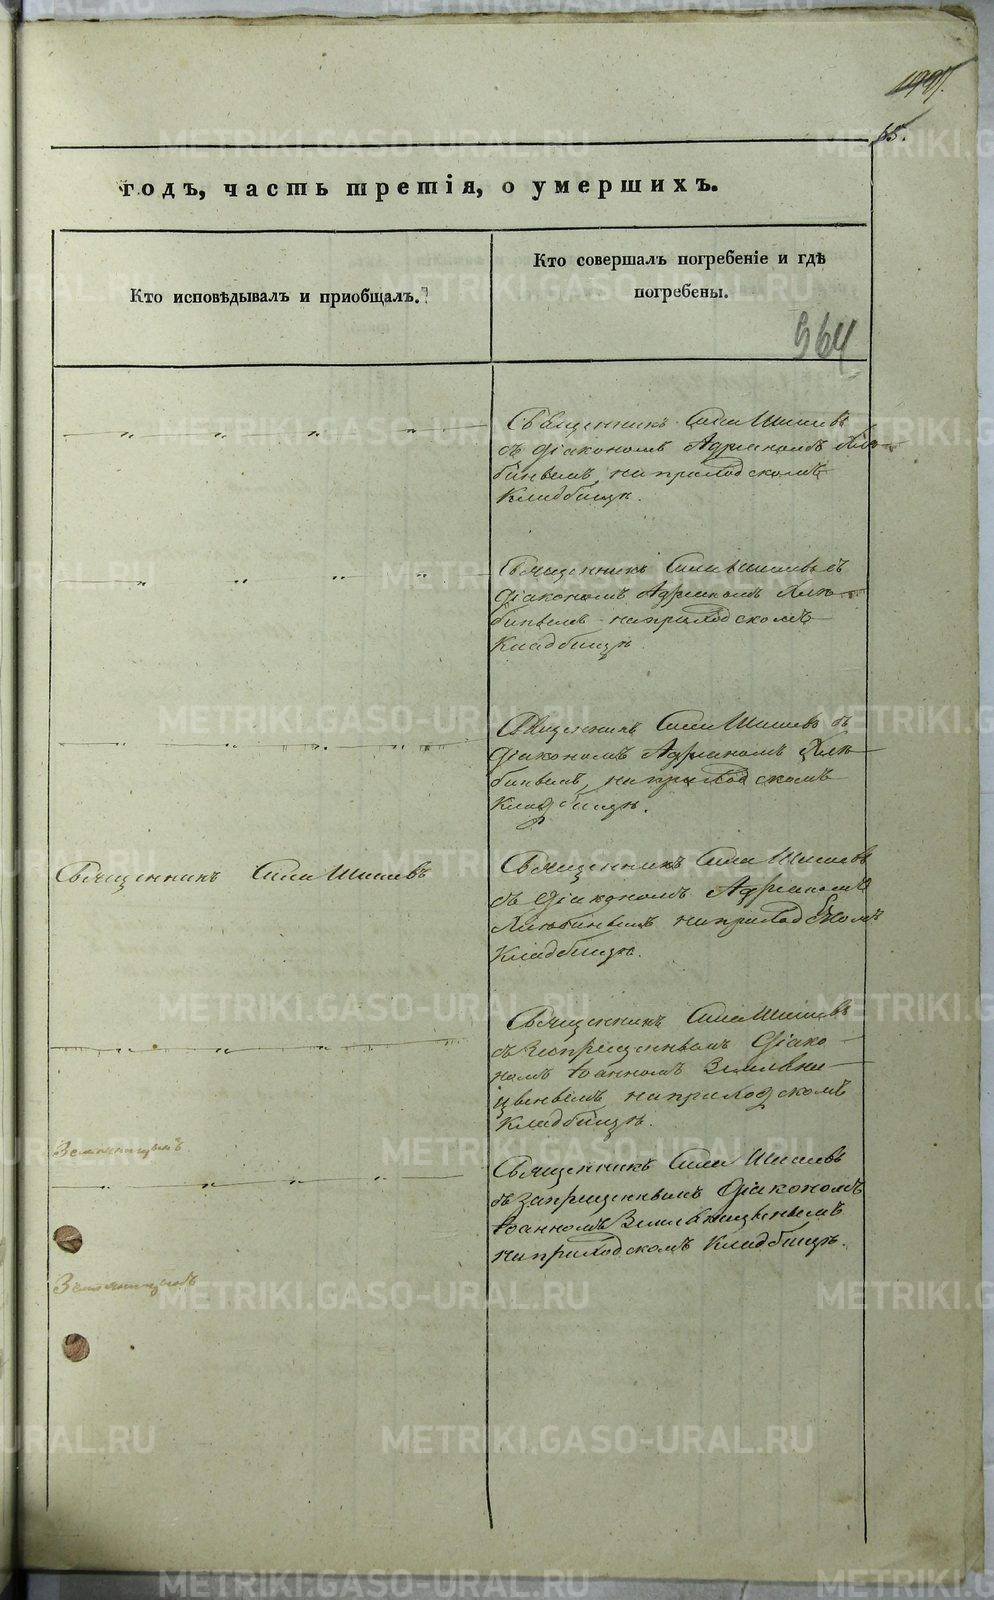 65.
годъ, часть третія, о умершихъ.
Кто исповѣдывалъ и приобщалъ.
Кто совершалъ погребеніе и гдѣ
погребены.
964
Священникъ Сила Шишевъ
съ діакономъ Адріаномъ Хлю-
бинымъ, на приходскомъ
кладбищѣ.
Священникъ Сила Шишевъ съ
діакономъ Адріаномъ Хлю-
бинымъ на приходскомъ
кладбищѣ
Священникъ Сила Шишевъ съ
діакономъ Адріаномъ Хлю-
бинымъ, на приходскомъ
кладбищѣ.
Священникъ Сила Шишевъ
Священникъ Сила Шишевъ
съ діакономъ Адріаномъ
на приходскомъ
кладбищѣ.
Священникъ Сила Шишевъ
съ запрещеннымъ діако-
номъ Іоанномъ
на приходскомъ
кладбищѣ.
Священникъ Сила Шишевъ
съ запрещеннымъ діакономъ
Іоанномъ
на приходскомъ кладбищѣ.
METRIKI.GASO-URAL.RU